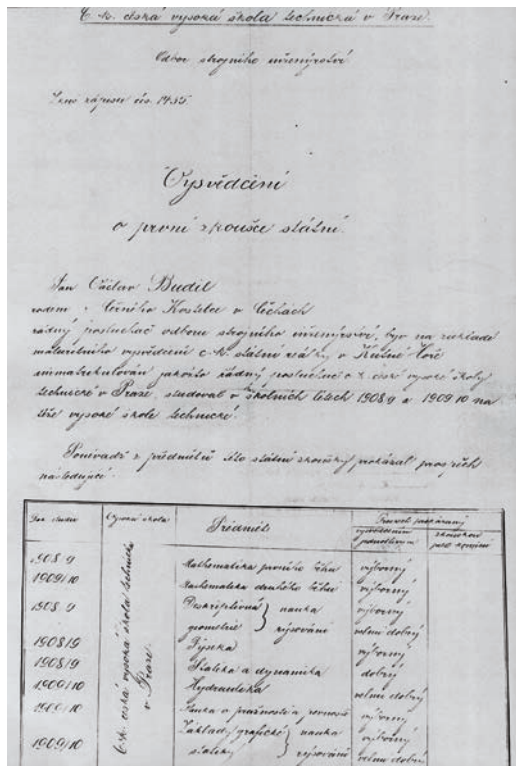 C. k. česká vysoká škola technická v Praze.
Odbor strojního inženýrství.
čís. 1435
Vysvědčení
o první zkoušce státní.
Pan Václav Budil
rodem z Černého Kostelce v Čechách
řádný posluchač odboru strojního inženýrství, byv na základě
maturitního vysvědčení c. k. státní reálky v Kutné Hoře
immatrikulován jakožto řádný posluchač c. k. české vysoké školy
technické v Praze, studoval v školních letech 1908/9 a 1909/10 na
této vysoké škole technické.
Poněvadž z předmětů této státní zkoušky prokázal prospěch
následující:
Vysoká škola
Předmět
Prospěch prokázaný
vysvědčením
zkouškou
před komisí
C. k. česká vysoká škola technická
v Praze.
1908/9 Mathematika prvního běhu výborný
1909/10 Mathematika druhého běhu výborný
1908/9 Deskriptivná nauka výborný
geometrie rýsování velmi dobrý
1908/9 Fysika výborný
1908/9 Statika a dynamika dobrý
1909/10 Hydraulika velmi dobrý
1909/10 Nauka o pružnosti a pevnosti výborný
Základy grafické nauka výborný
1909/10 statiky rýsování velmi dobrý